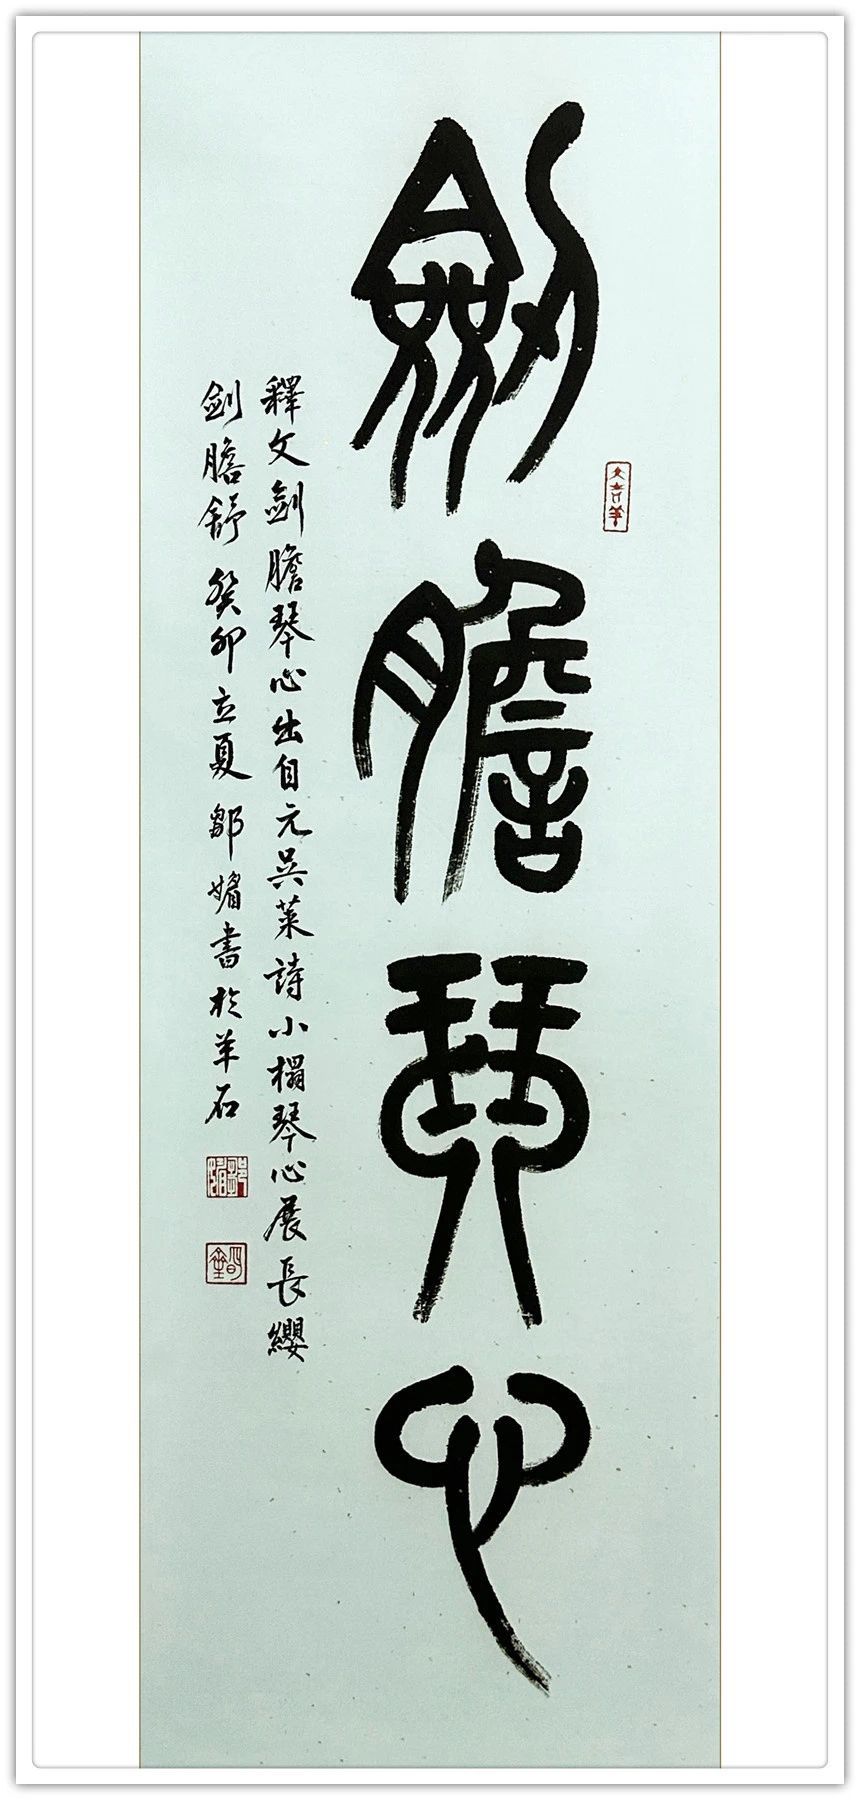 劍膽琴心
釋文劍膽琴心出自元吳萊詩小榻琴心展長纓
劍膽舒癸卯立夏鄒媚書於羊石
大吉羊